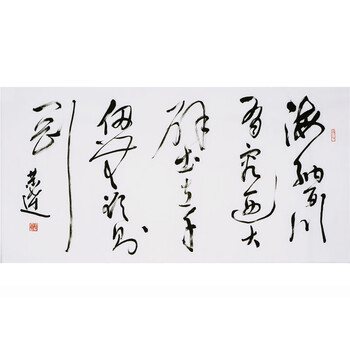 海纳百川
有容迺大
壁立千
仞无欲则
刚